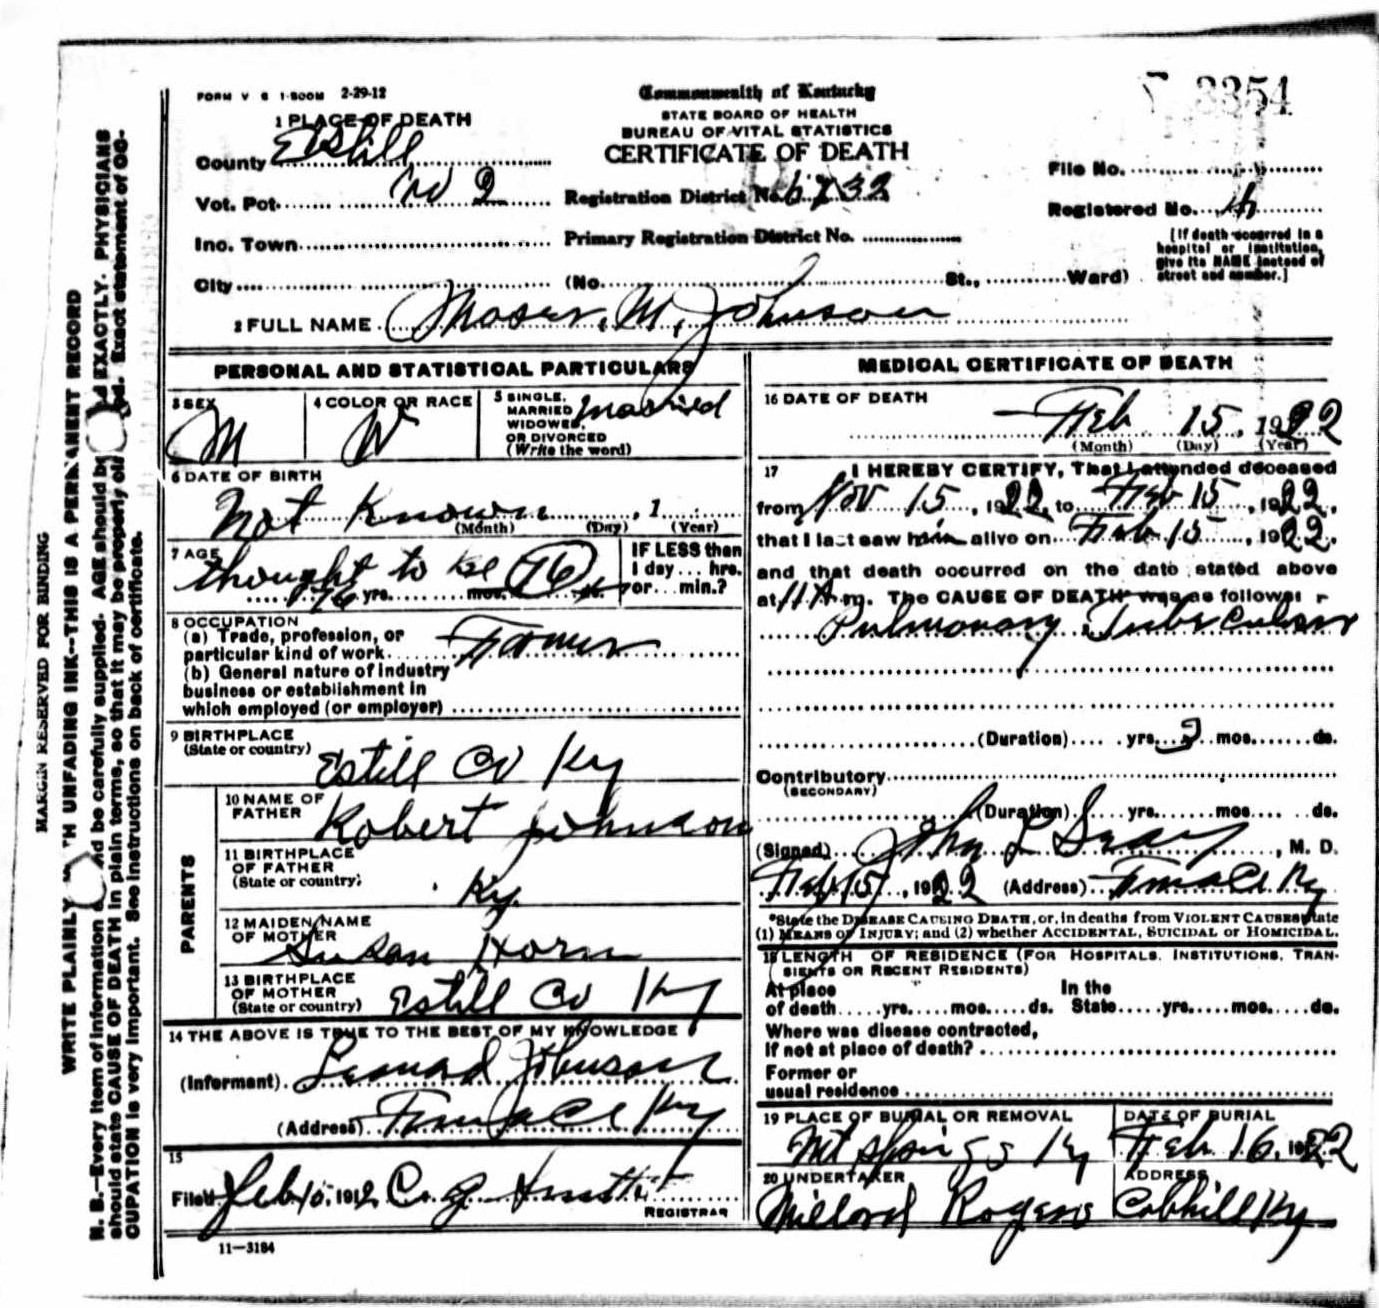 FORM V S 1-500M 2-29-12
Commonwealth of Kentucky
STATE BOARD OF HEALTH
BUREAU OF VITAL STATISTICS
CERTIFICATE OF DEATH
3354
1 PLACE OF DEATH
County Estill
Vot. Pct. No 2
Inc. Town
City
Registration District No. 6732
Primary Registration District No.
(No. St., Ward)
File No.
Registered No.
[If death occurred in a
hospital or institution,
give its NAME instead of
street and number.]
2 FULL NAME Moser. M. Johnson
PERSONAL AND STATISTICAL PARTICULARS
3 SEX
M
4 COLOR OR RACE
W
5 SINGLE,
MARRIED
WIDOWED,
OR DIVORCED
(Write the word)
Married
6 DATE OF BIRTH
Not Known , 1
(Month) (Day) (Year)
7 AGE
thought to be 76
76 yrs. mos. ds.
IF LESS than
1 day ... hrs.
or ... min.?
8 OCCUPATION
(a) Trade, profession, or
particular kind of work Farmer
(b) General nature of industry
business or establishment in
which employed (or employer)
9 BIRTHPLACE
(State or country) Estill Co Ky
PARENTS
10 NAME OF
FATHER Robert Johnson
11 BIRTHPLACE
OF FATHER
(State or country) Ky.
12 MAIDEN NAME
OF MOTHER
Susan Horn
13 BIRTHPLACE
OF MOTHER
(State or country) Estill Co Ky
14 THE ABOVE IS TRUE TO THE BEST OF MY KNOWLEDGE
(Informant) Leonard Johnson
(Address) Furnace Ky
15
Filed Feb 10, 191 C. g.
REGISTRAR
11—3184
MEDICAL CERTIFICATE OF DEATH
16 DATE OF DEATH
Feb 15, 1922
(Month) (Day) (Year)
17 I HEREBY CERTIFY, That I attended deceased
from Nov 15, 1922, to Feb 15, 1922,
that I last saw him alive on Feb 15, 1922,
and that death occurred on the date stated above
at 11 A m. The CAUSE OF DEATH* was as follows:
Pulmonary Tuberculosis
(Duration) yrs. 3 mos. ds.
Contributory
(SECONDARY)
(Duration) yrs. mos. ds.
(Signed) John L , M. D.
Feb 15, 1922 (Address) Furnace Ky
*State the DISEASE CAUSING DEATH, or, in deaths from VIOLENT CAUSES state
(1) MEANS OF INJURY; and (2) whether ACCIDENTAL, SUICIDAL OR HOMICIDAL.
18 LENGTH OF RESIDENCE (FOR HOSPITALS, INSTITUTIONS, TRAN-
SIENTS OR RECENT RESIDENTS)
At place
of death yrs. mos. ds.
In the
State yrs. mos. ds.
Where was disease contracted,
If not at place of death?
Former or
usual residence
19 PLACE OF BURIAL OR REMOVAL
Mt Springs Ky
DATE OF BURIAL
Feb 16, 1922
20 UNDERTAKER
Millard Rogers
ADDRESS
Cobhill Ky
MARGIN RESERVED FOR BINDING
WRITE PLAINLY WITH UNFADING INK—THIS IS A PERMANENT RECORD
N. B.—Every item of information should be carefully supplied. AGE should be EXACTLY. PHYSICIANS
should state CAUSE OF DEATH in plain terms, so that it may be properly classified. Exact statement of OC-
CUPATION is very important. See instructions on back of certificate.